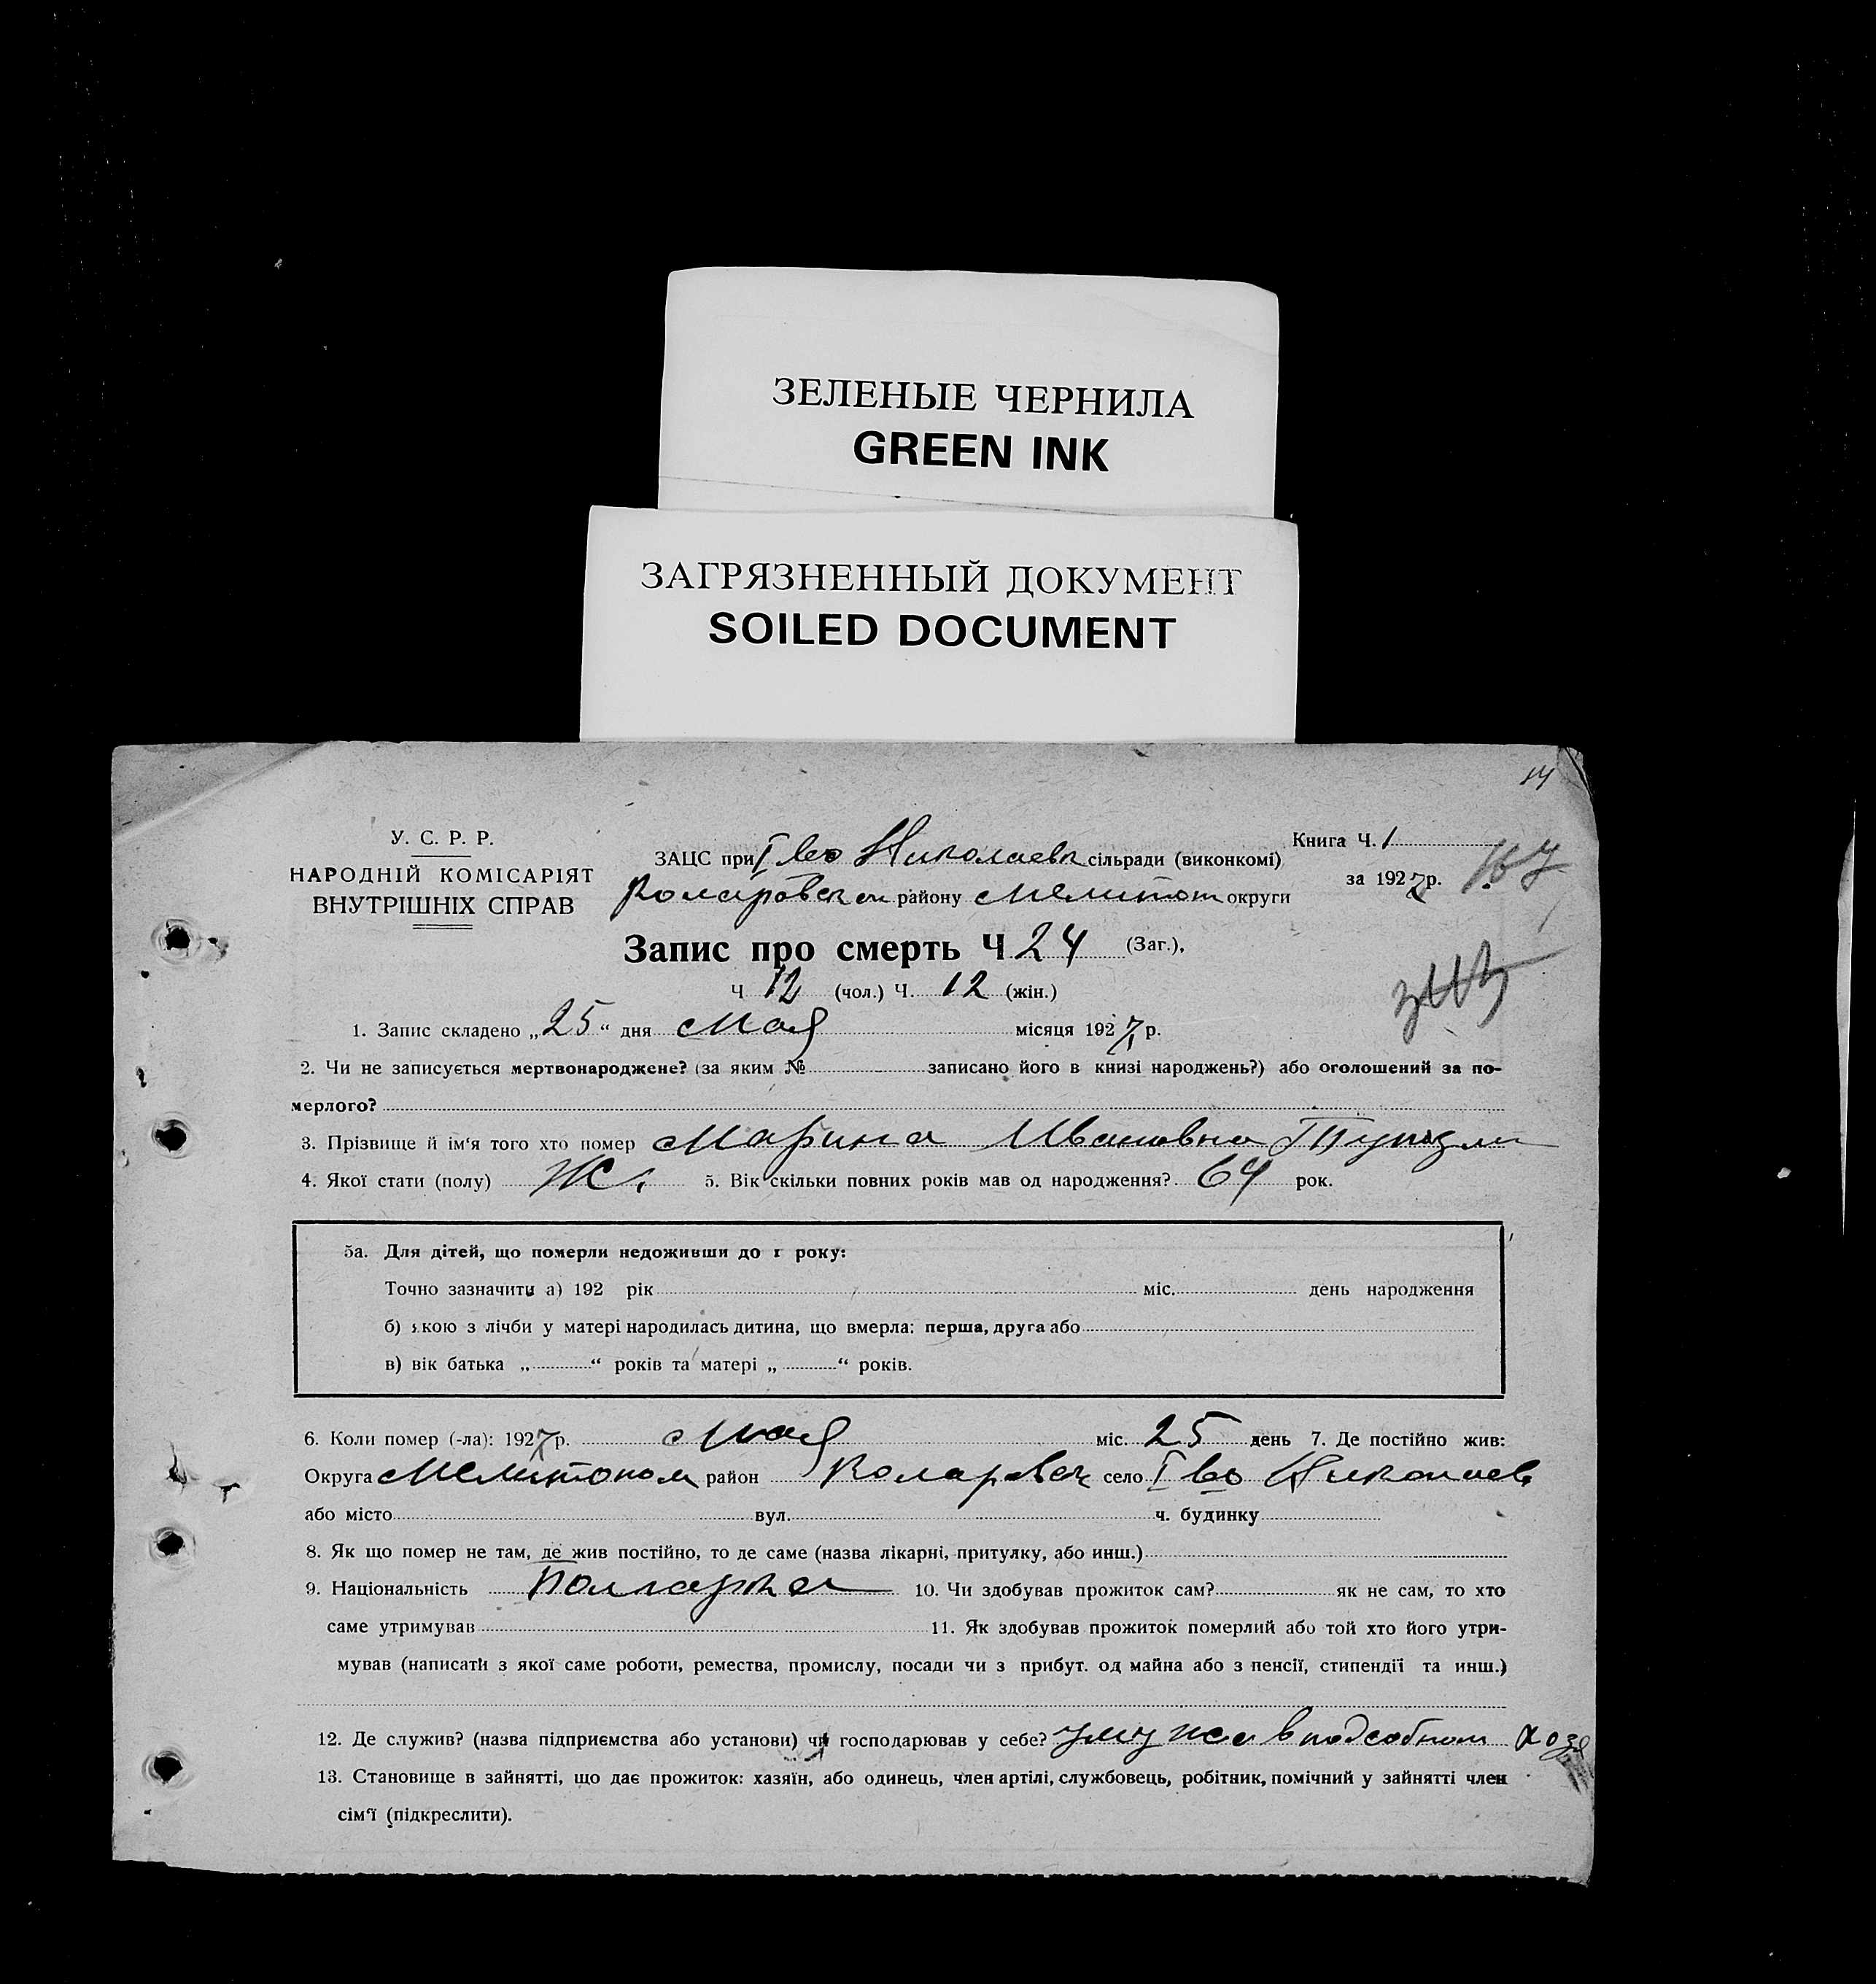 ЗЕЛЕНЫЕ ЧЕРНИЛА
GREEN INK
ЗАГРЯЗНЕННЫЙ ДОКУМЕНТ
SOILED DOCUMENT
14
У. С. Р. Р.
НАРОДНІЙ КОМІСАРІЯТ
ВНУТРІШНІХ СПРАВ
ЗАЦС при I во Николаевк сільради (виконкомі)
Коларовск району Мелитоп округи
Книга Ч. 1
за 1927 р.
Запис про смерть Ч 24 (Заг.),
Ч 12 (чол.) Ч. 12 (жін.)
1. Запис складено „25“ дня Мая місяця 1927 р.
2. Чи не записується мертвонароджене? (за яким № записано його в книзі народжень?) або оголошений за по-
мерлого?
3. Прізвище й ім‘я того хто помер Марина Ивановна
4. Якої стати (полу) Ж. 5. Вік скільки повних років мав од народження? 64 рок.
5а. Для дітей, що померли недоживши до 1 року:
Точно зазначити а) 192 рік міс. день народження
б) якою з лічби у матері народилась дитина, що вмерла: перша, друга або
в) вік батька „ “ років та матері „ “ років.
6. Коли помер (-ла): 1927 р. Мая міс. 25 день 7. Де постійно жив:
Округа Мелитопом район Коларовск село I во Николаев
або місто вул. ч. будинку
8. Як що помер не там, де жив постійно, то де саме (назва лікарні, притулку, або инш.)
9. Національність болгарка 10. Чи здобував прожиток сам? як не сам, то хто
саме утримував 11. Як здобував прожиток померлий або той хто його утри-
мував (написати з якої саме роботи, ремества, промислу, посади чи з прибут. од майна або з пенсії, стипендії та инш.)
12. Де служив? (назва підприємства або установи) чи господарював у себе? у мужа в подсобном хозя
13. Становище в зайнятті, що дає прожиток: хазяїн, або одинець, член артілі, службовець, робітник, помічний у зайнятті член
сім‘ї (підкреслити).